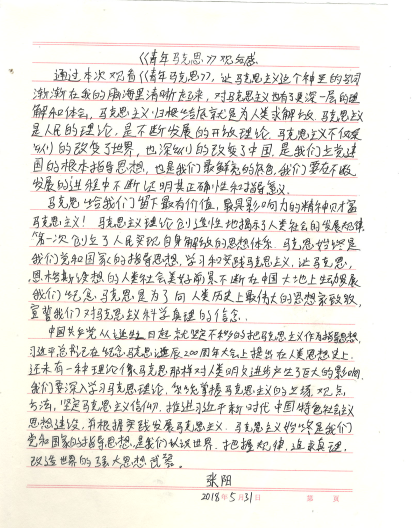 《青年马克思》观后感
通过本次观看《青年马克思》，让马克思主义这个神圣的名词
渐渐在我的脑海里清晰起来，对马克思主义也有了更深一层的理
解和体会，马克思主义归根结底就是为人类求解放，马克思主义
是人民的理论，是不断发展的开放理论，马克思主义不仅深
刻的改变了世界，也深刻的改变了中国，是我们立党建
国的根本指导思想，也是我们最鲜亮的底色，我们要在不断
发展的进程中不断证明其正确性和指导意义。
马克思给我们留下最有价值，最具影响力的精神财富
马克思主义！马克思主义理论创造性地揭示了人类社会的发展规律
第一次创立了人民实现自身解放的思想体系，马克思始终是
我们党和国家的指导思想，学习和实践马克思主义，让马克思，
恩格斯设想的人类社会美好前景不断在中国大地上生动发展
我们纪念马克思是为了向人类历史上最伟大的思想家致敬，
宣誓我们对马克思主义科学真理的信念。
中国共产党从诞生日起就坚定不移的把马克思主义作为指导思想，
习近平总书记在纪念马克思诞辰200周年大会上提出在人类思想史上，
还未有一种理论像马克思那样对人类明文进步产生了巨大的影响，
我们要深入学习马克思理论，继续掌握马克思主义的立场，观点，
方法，坚定马克思主义信仰，推进习近平新时代中国特色社会主义
思想建设，并根据实践发展马克思主义，马克思主义始终是我们
党和国家的指导思想，是我们认识世界，把握规律，追求真理，
改造世界的强大思想武器。
张阳
2018年5月31日
第 页